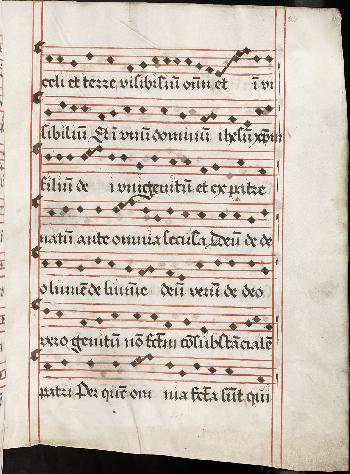 celi et terre visibiliū om̄ et ī vi
sibiliū Et ī unū dominū ihesū xp̄m
filiū de i unigenitū et ex patre
natū ante omnia secula Deū de de
o lumē de lumīe deū verū de deo
vero genitū nō fctm̄ cōsubstācialē
patri Per quē om nia fcta sūt qui